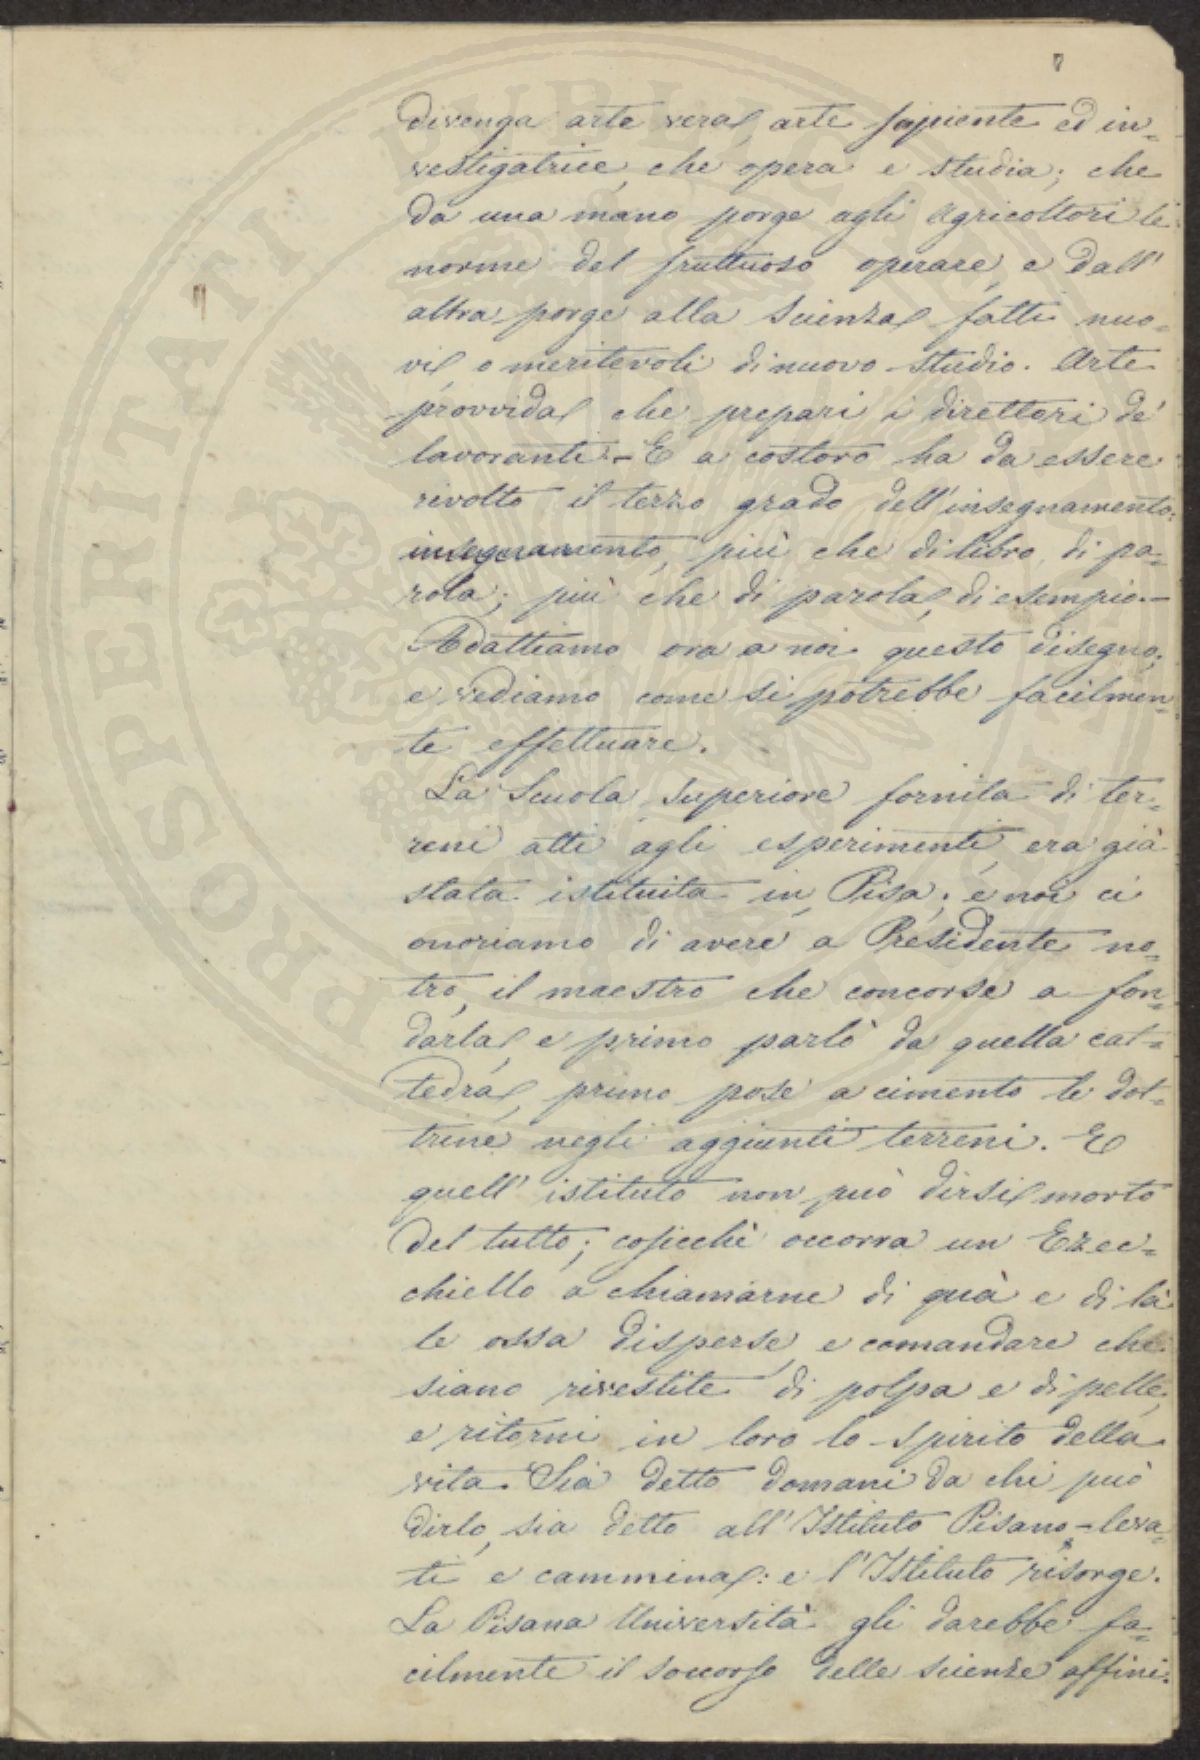 divenga arte vera, arte sapiente ed in=
vestigatrice, che opera e studia; che
da una mano porge agli Agricoltori le
norme del fruttuoso operare, e dall'
altra porge alla Scienza fatti nuo=
vi, o meritevoli di nuovo studio. Arte
provvida, che prepari i direttori de'
lavoranti. - E a costoro ha da essere
rivolto il terzo grado dell'insegnamento:
insegnamento, più che di libro, di pa=
rola; più che di parola, di esempio. -
Adattiamo ora a noi questo disegno;
e vediamo come si potrebbe facilmen=
te effettuare.
La Scuola superiore fornita di ter=
reni atti agli esperimenti, era già
stata istituita in Pisa; e noi ci
onoriamo di avere a Presidente no=
tro, il maestro che concorse a fon=
darla, e primo parlò da quella cat=
tedra, primo pose a cimento le dot=
trine negli aggiunti terreni. E
quell'istituto non può dirsi morto
del tutto; cosicchè occorra un Ezec=
chiello a chiamarne di quà e di là
le ossa disperse, e comandare che
siano rivestite di polpa e di pelle,
e ritorni in loro lo spirito della
vita. Sia detto domani da chi può
dirlo, sia detto all'Istituto Pisano - leva=
ti e cammina: e l'Istituto risorge.
La Pisana Università gli darebbe fa=
cilmente il soccorso delle scienze affini:
PROSPERITATI PUBLICAE AUGENDAE